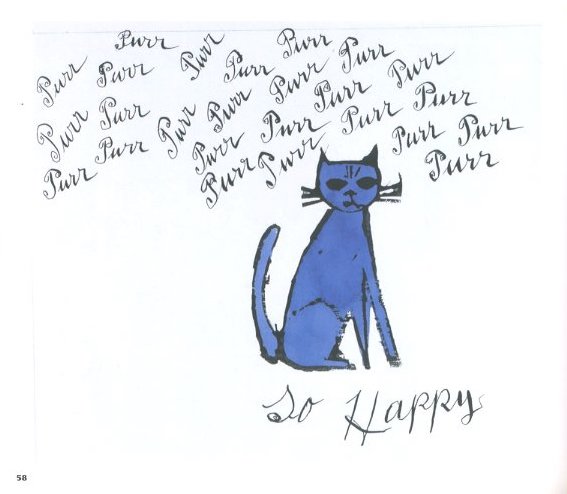 Purr Purr Purr Purr
Purr Purr Purr Purr Purr
Purr Purr Purr Purr
Purr Purr Purr Purr Purr Purr
Purr Purr Purr Purr
Purr Purr
So Happy
58